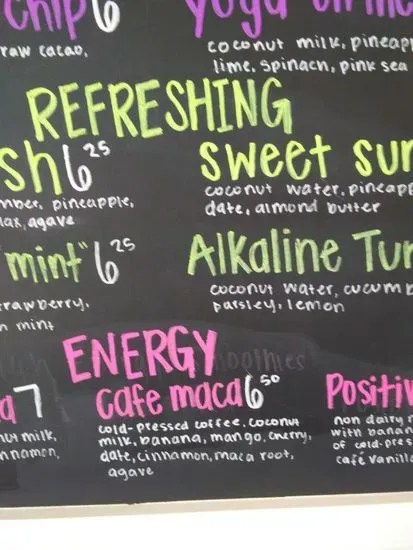 chip 6
raw cacao,
coconut milk, pineapp
lime, spinach, pink sea
REFRESHING
sh 6 25
mber, pineapple,
lax, agave
sweet sur
coconut water, pineapp
date, almond butter
"mint" 6 25
trawberry,
n mint
Alkaline Tur
coconut water, cucumb
parsley, lemon
ENERGY
smoothies
a 7
nut milk,
nnamon,
cafe maca 6 50
cold-pressed coffee, coconut
milk, banana, mango, cherry,
date, cinnamon, maca root,
agave
Positiv
non dairy m
with banan
of cold-pres
café vanilla